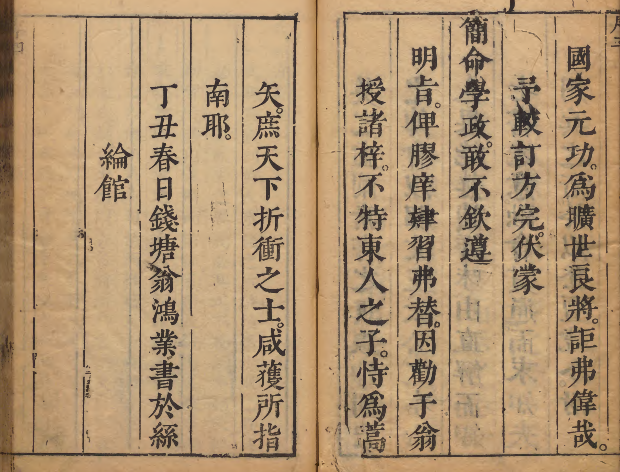 國家元功。爲曠世良將。詎弗偉哉。
予較訂方完。伏蒙
簡命學政。敢不欽遵
明旨。俾膠庠肄習弗替。因勸于翁
授諸梓。不特東人之子。恃爲蒿
矢。庶天下折衝之士。咸獲所指
南耶。
丁丑春日錢塘翁鴻業書於絲
綸館